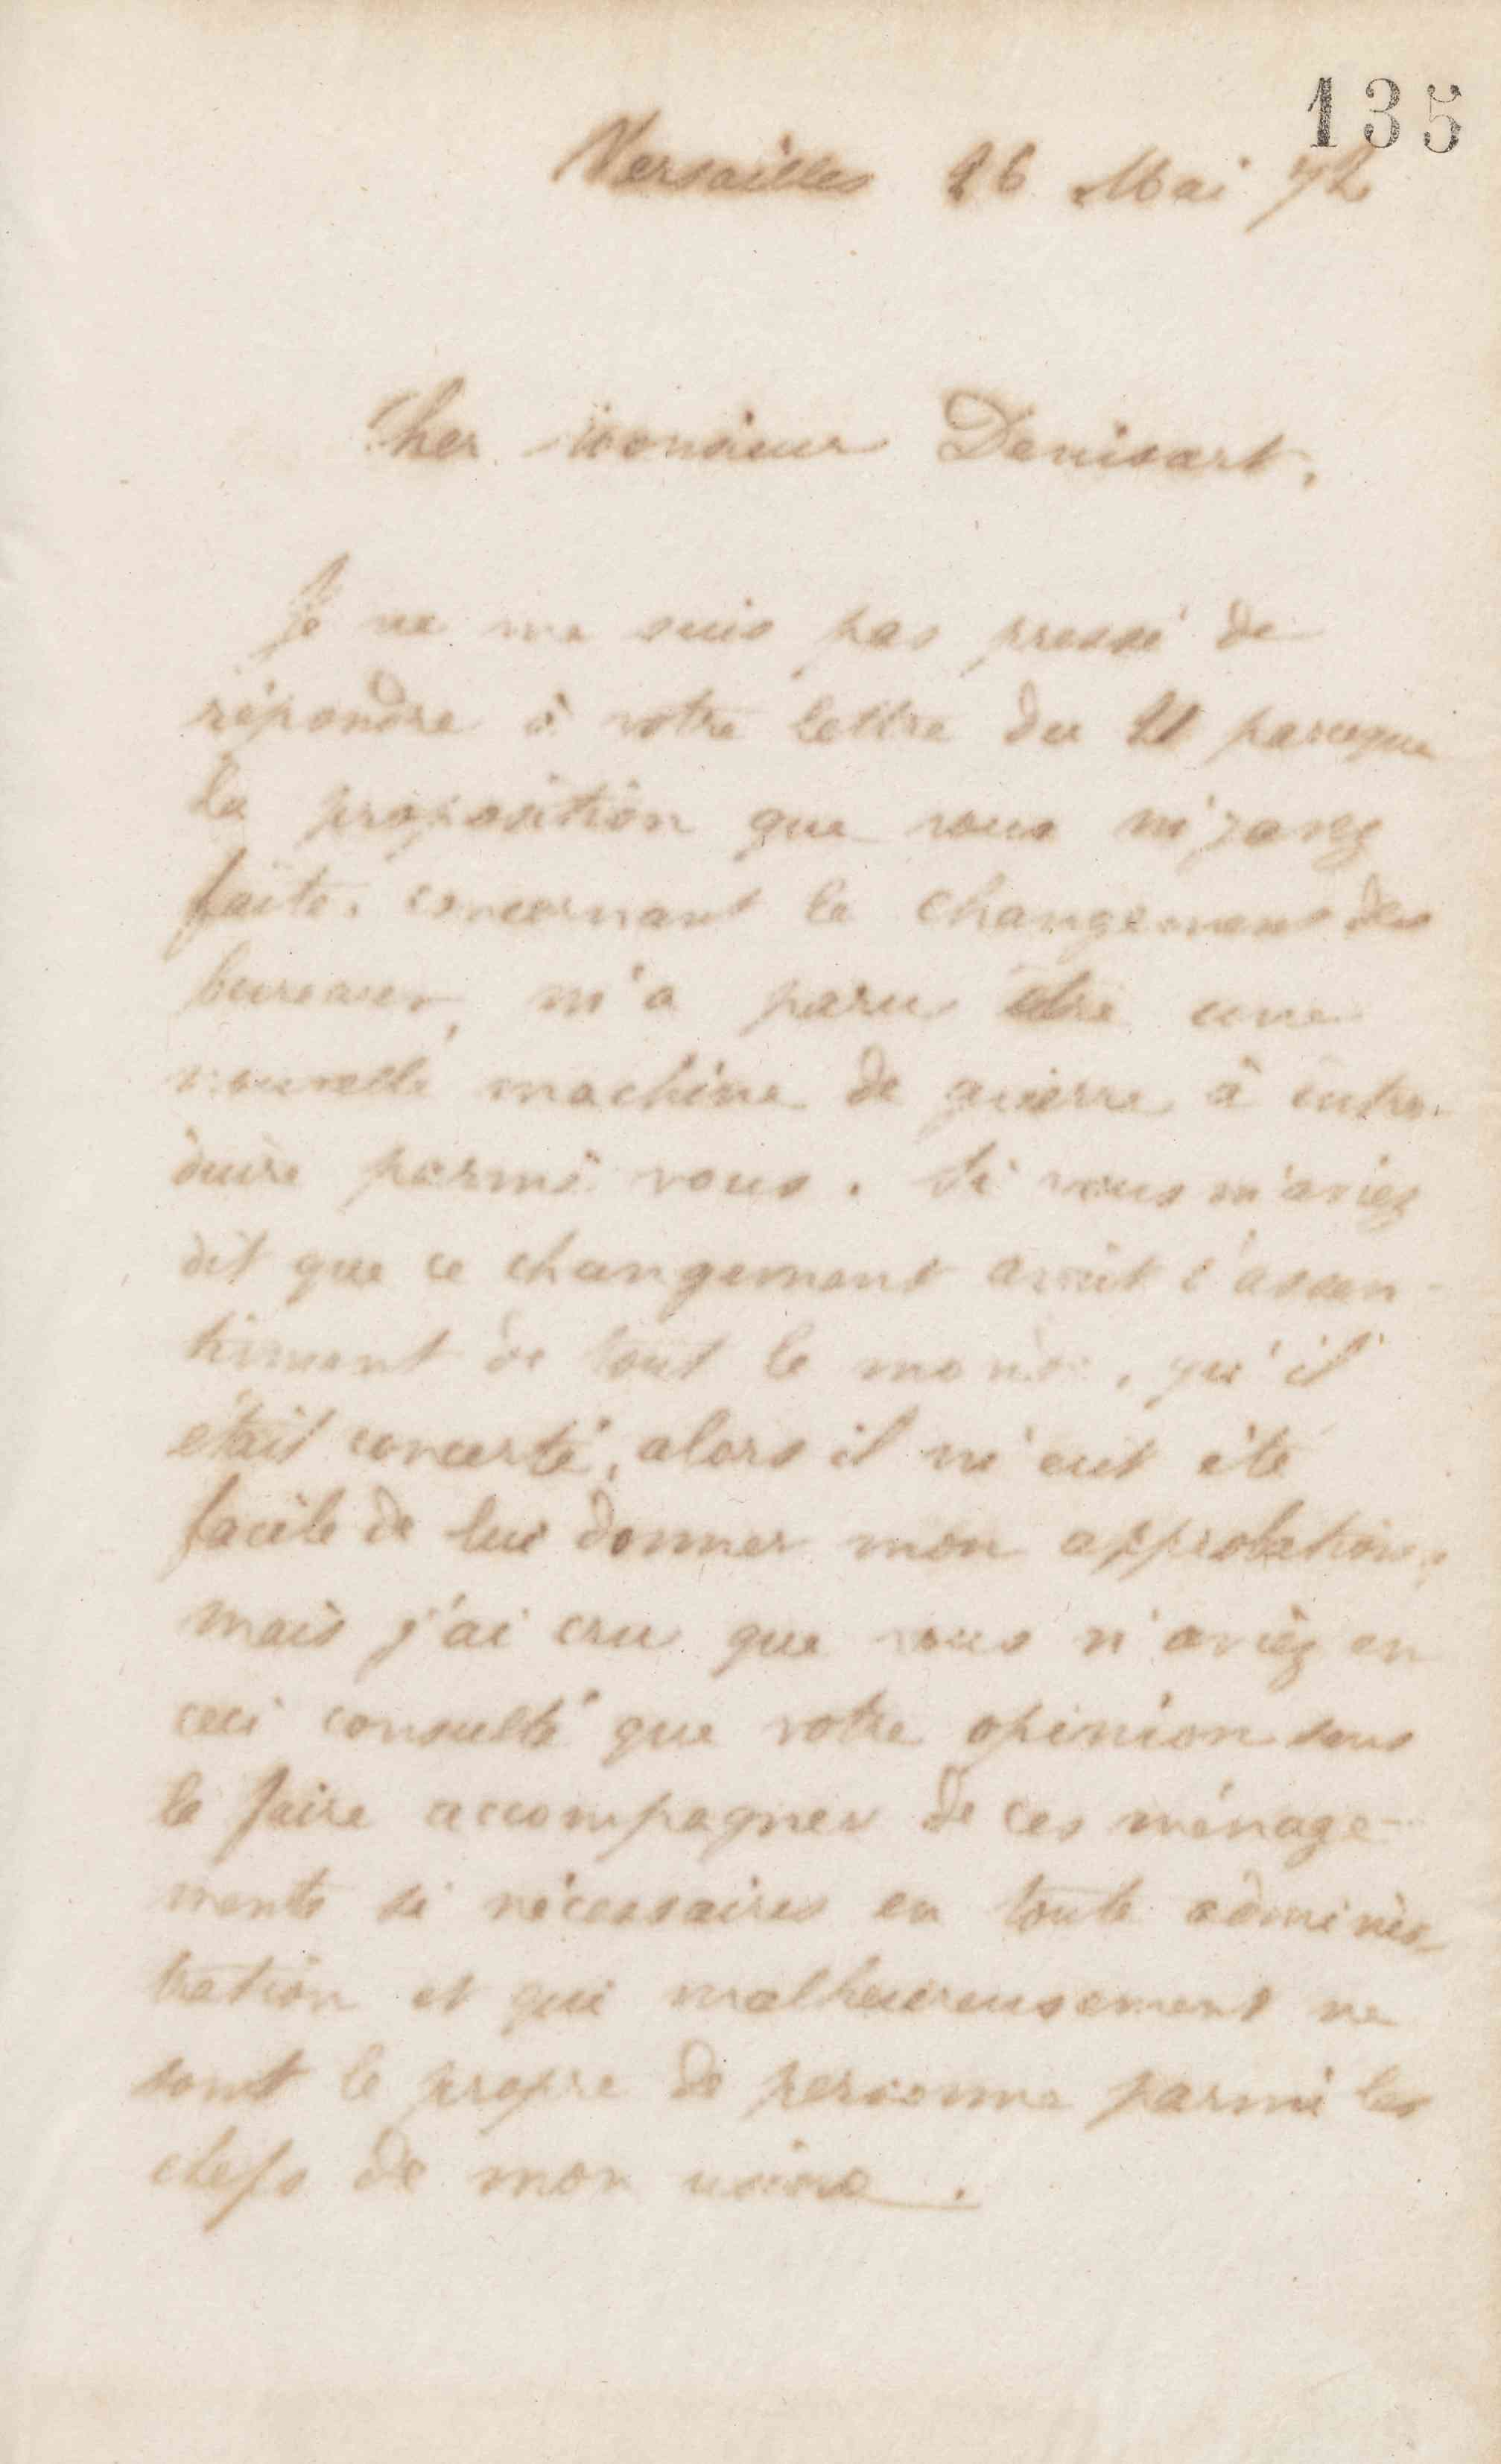 135
Versailles 26 Mai 72
Cher Monsieur Denisart,
Je ne me suis pas pressé de
répondre à votre lettre du 21 parceque
la proposition que vous m'y avez
faite, concernant le changement des
bureaux, m'a paru être une
nouvelle machine de guerre à intro-
duire parmi vous. Si vous m'aviez
dit que ce changement avait l'assen-
timent de tout le monde, qu'il
était concerté, alors il m'eut été
facile de lui donner mon approbation,
mais j'ai cru que vous n'aviez en
ceci consulté que votre opinion sans
la faire accompagner de ces ménage-
ments si nécessaires en toute adminis-
tration et qui malheureusement ne
sont le propre de personne parmi les
chefs de mon usine.